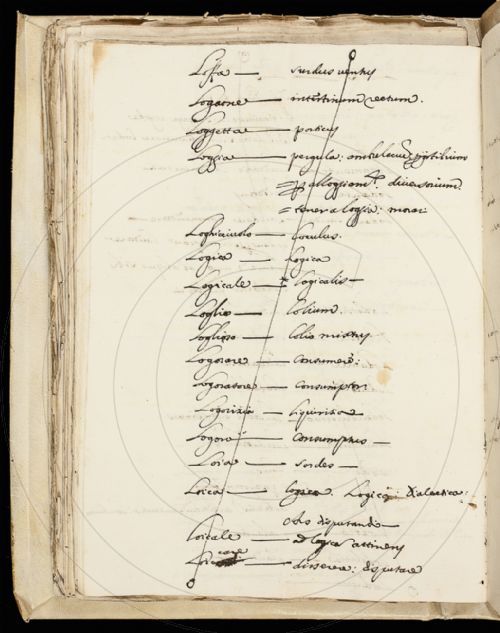 Loffa — surdus ventus
Logaone — intestinum rectum.
Loggetta — porticus
Loggia — pergula: ambulacrum
= alloggiam.to diversorium
= tener a loggia: morar
Loghicciuolo — loculus.
Logica — Logica
Logicale — logicalis —
Loglio — Lolium.
loglioso — lolio mixtus
Logorare — consumere:
Logoratore — consumptor
Logorizia — liquiritia
Logoro — consumptus —
Loia — sordes —
Loica — logica. Logica: Dialectica:
disputandi —
Loicale — ad logica attinens
Loicare — disserere: disputare